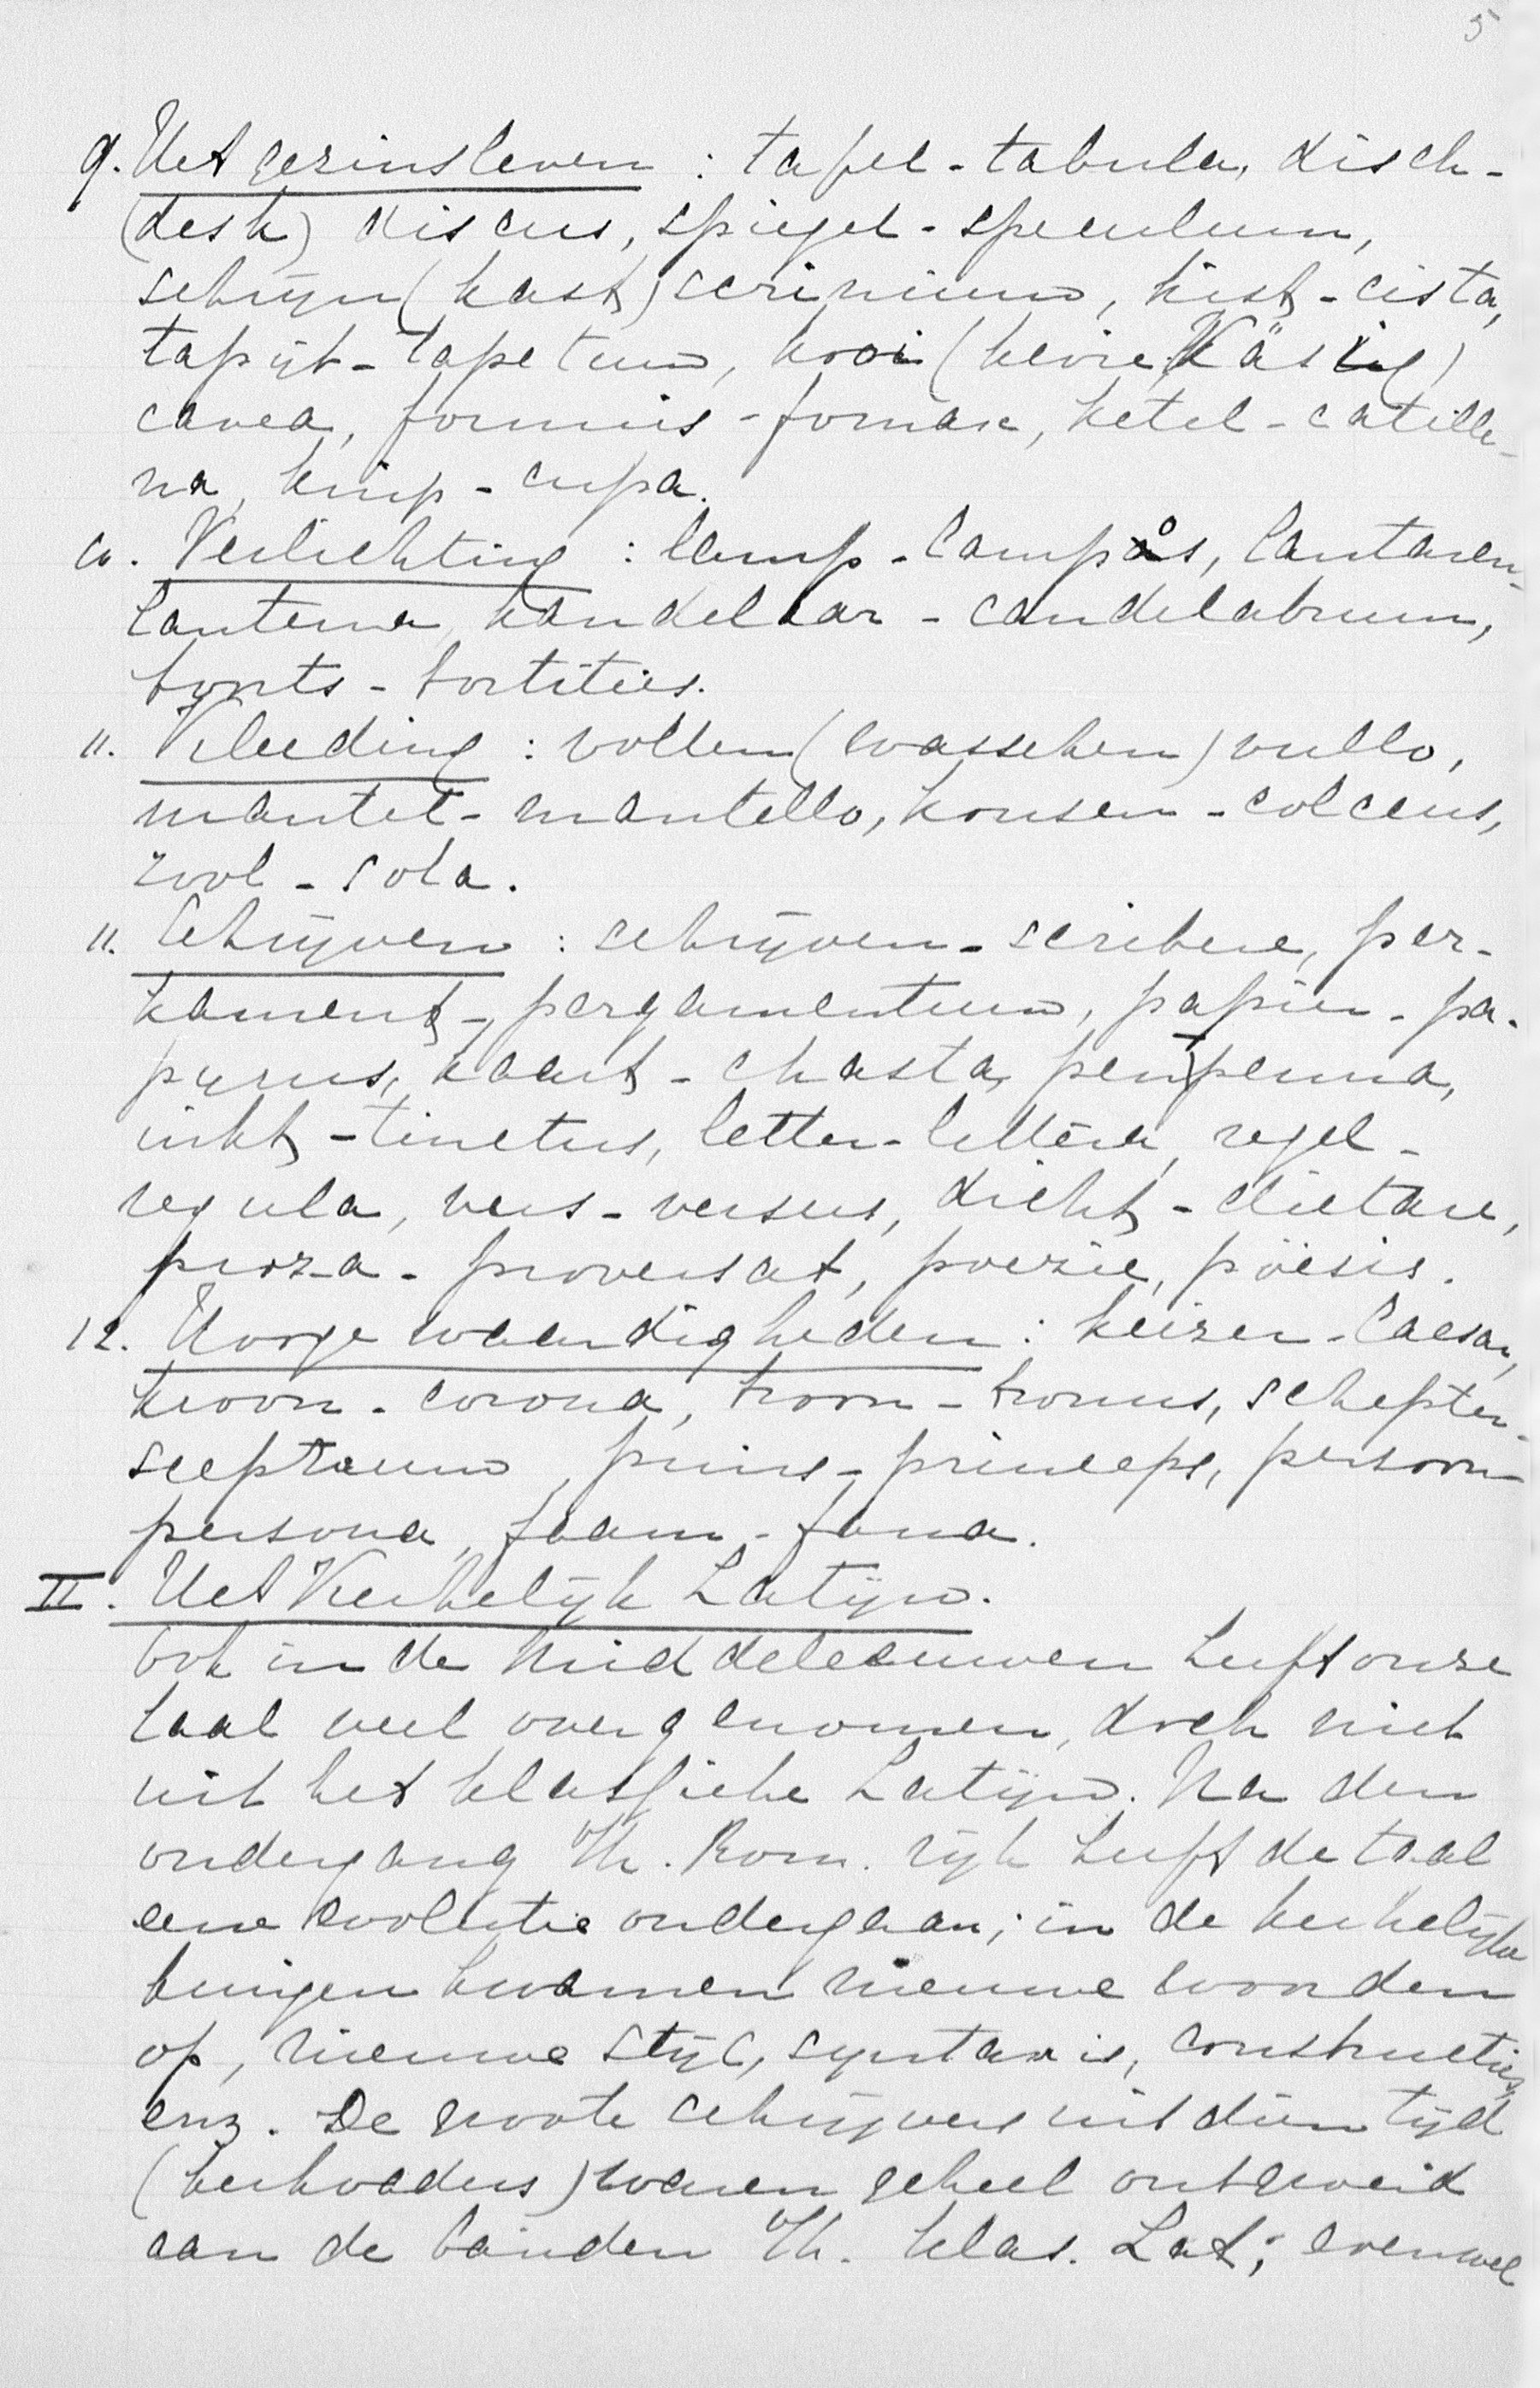 5
9. Het gezinsleven : tafel - tabula, disch -
(desk) discus, spiegel - speculum,
schrijn (kast) scrinium, kist - cista,
tapijt - tapetum, kooi (kevie, Käsig)
cavea, fornuis - fornax, ketel - catilli-
na, kuip - cupa.
10. Verlichting : lamp - lampas, lantaren -
lanterna, kandelaar - candelabrum,
toorts - tortitius.
11. Kleeding : vollen (wasschen) vullo,
mantel - mantello, kousen - calceus,
zool - sola.
11. Schrijven : schrijven - scribere, per-
kament - pergamentum, papier - pa-
pyrus, kaart - chasta, pen - penna,
inkt - tinctus, letter - littera, regel -
regula, vers - versus, dicht - dictare,
proza - proversat, poezie, poësis.
12. Hooge waardigheden : keizer - Caesar,
kroon - corona, troon - tronus, schepter -
sceptrum, prins - princeps, persoon -
persona, faam - fama.
II. Het Kerkelijk Latijn.
Ook in de Middeleeuwen heeft onze
taal veel overgenomen, doch niet
uit het klassieke Latijn. Na den
ondergang v/h. Rom. rijk heeft de taal
eene evolutie ondergaan; in de kerkelijke
kringen kwamen nieuwe woorden
op, nieuwe stijl, syntaxis, constructies,
enz. De groote schrijvers uit dien tijd
(kerkvaders) waren geheel ontgroeid
aan de banden v/h. klas. Lat; evenwel